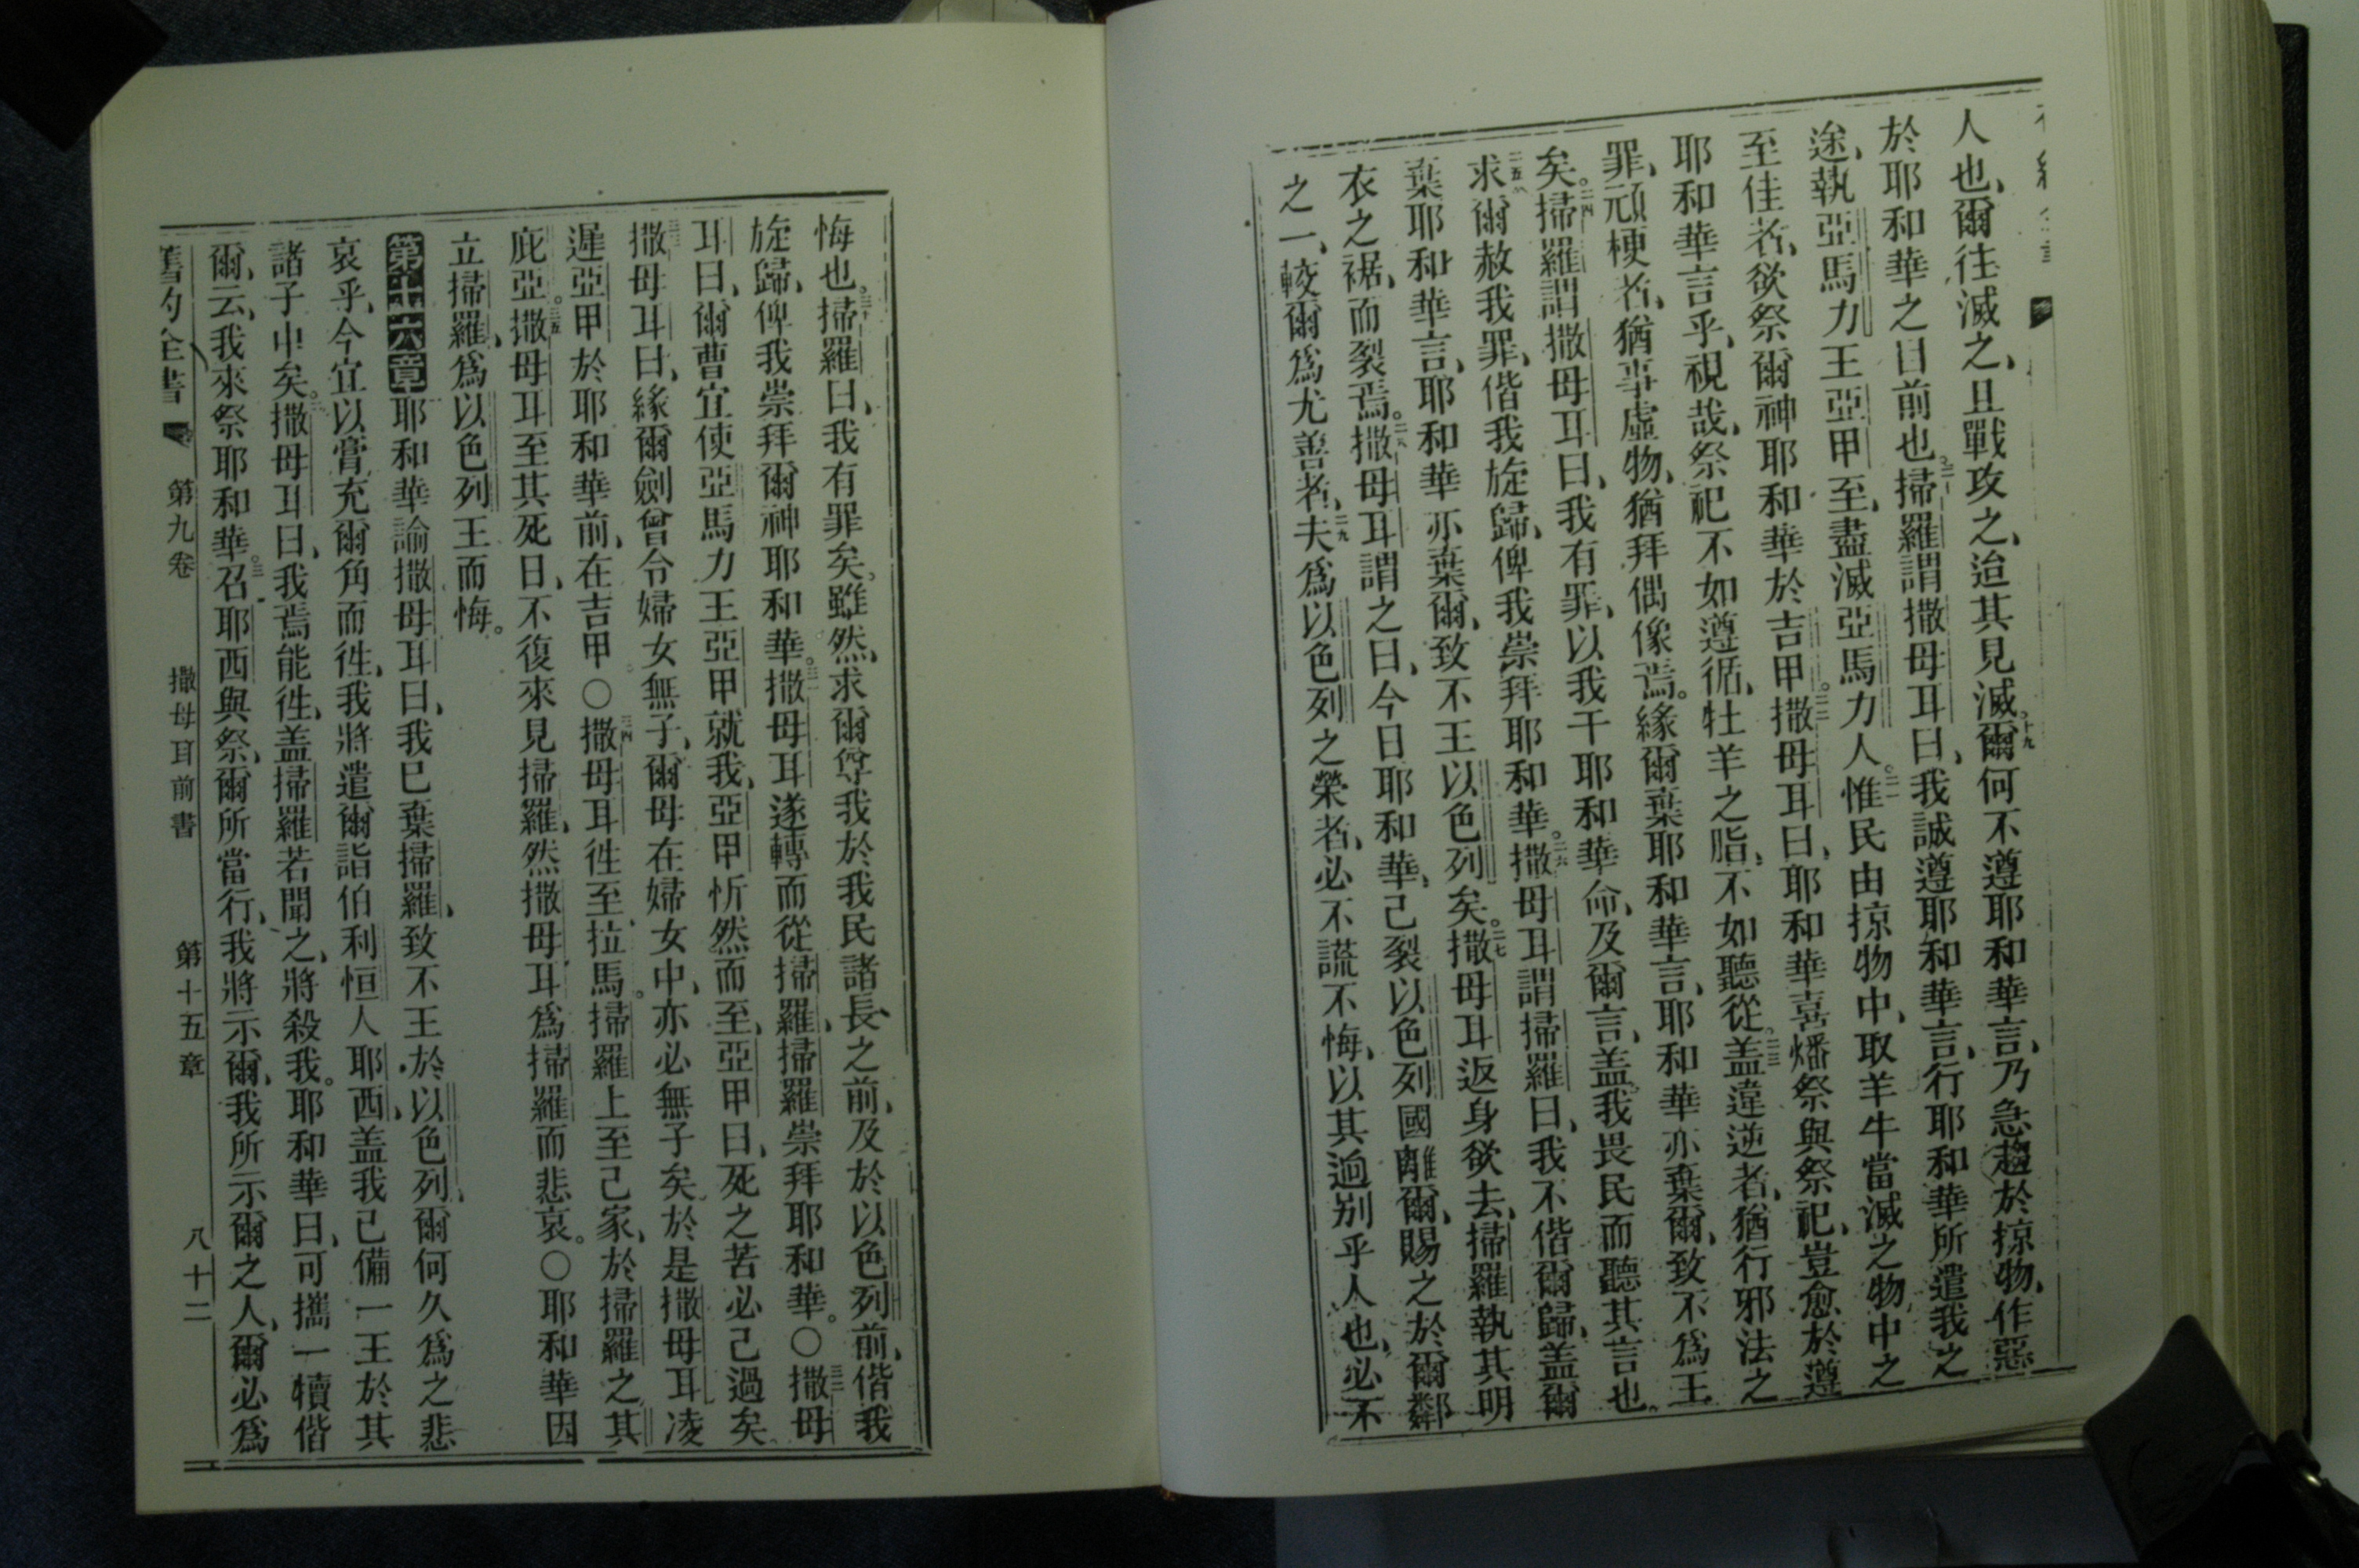 人也、爾往滅之、且戰攻之、迨其見滅。十九爾何不遵耶和華言、乃急趨於掠物、作惡
於耶和華之目前也。二十掃羅謂撒母耳曰、我誠遵耶和華言、行耶和華所遣我之
途、執亞馬力王亞甲至、盡滅亞馬力人。二一惟民由掠物中、取羊牛當滅之物、中之
至佳者、欲祭爾神耶和華於吉甲。二二撒母耳曰、耶和華喜燔祭與祭祀、豈愈於遵
耶和華言乎、視哉、祭祀不如遵循、牡羊之脂、不如聽從。二三盖違逆者、猶行邪法之
罪、頑梗者、猶事虛物、猶拜偶像焉。緣爾棄耶和華言、耶和華亦棄爾、致不爲王
矣。二四掃羅謂撒母耳曰、我有罪、以我干耶和華命、及爾言、盖我畏民而聽其言也。
二五求爾赦我罪、偕我旋歸、俾我崇拜耶和華。二六撒母耳謂掃羅曰、我不偕爾歸、盖爾
棄耶和華言、耶和華亦棄爾、致不王以色列矣。二七撒母耳返身欲去、掃羅執其明
衣之裾、而裂焉。二八撒母耳謂之曰、今日耶和華、己裂以色列國離爾、賜之於爾鄰
之一、較爾爲尤善者、二九夫爲以色列之榮者、必不謊不悔、以其逈别乎人也、必不
悔也。三十掃羅曰、我有罪矣。雖然、求爾尊我於我民諸長之前、及於以色列前、偕我
旋歸、俾我崇拜爾神耶和華。三一撒母耳遂轉而從掃羅、掃羅崇拜耶和華。○三二撒母
耳曰、爾曹宜使亞馬力王亞甲就我、亞甲忻然而至、亞甲曰、死之苦必己過矣。
三三撒母耳曰、緣爾劍曾令婦女無子、爾母在婦女中、亦必無子矣、於是撒母耳凌
遲亞甲於耶和華前、在吉甲○三四撒母耳徃至拉馬。掃羅上至己家、於掃羅之其
庇亞。三五撒母耳至其死日、不復來見掃羅、然撒母耳爲掃羅而悲哀。○耶和華因
立掃羅、爲以色列王而悔。
第十六章耶和華諭撒母耳曰、我巳棄掃羅、致不王於以色列、爾何久爲之悲
哀乎、今宜以膏充爾角而徃、我將遣爾詣伯利恒人耶西、盖我己備一王於其
諸子中矣。二撒母耳曰、我焉能徃、盖掃羅若聞之、將殺我。耶和華曰、可攜一犢偕
爾、云、我來祭耶和華。三召耶西與祭、爾所當行、我將示爾、我所示爾之人、爾必爲
舊約全書 第九卷 撒母耳前書 第十五章 八十二